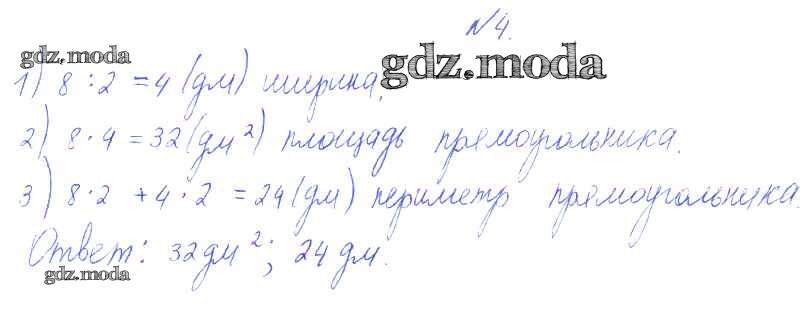 №4.
gdz.moda
gdz.moda
1) 8 : 2 = 4 (дм) ширина.
2) 8 · 4 = 32 (дм²) площадь прямоугольника.
3) 8 · 2 + 4 · 2 = 24 (дм) периметр прямоугольника.
Ответ: 32 дм²; 24 дм.
gdz.moda